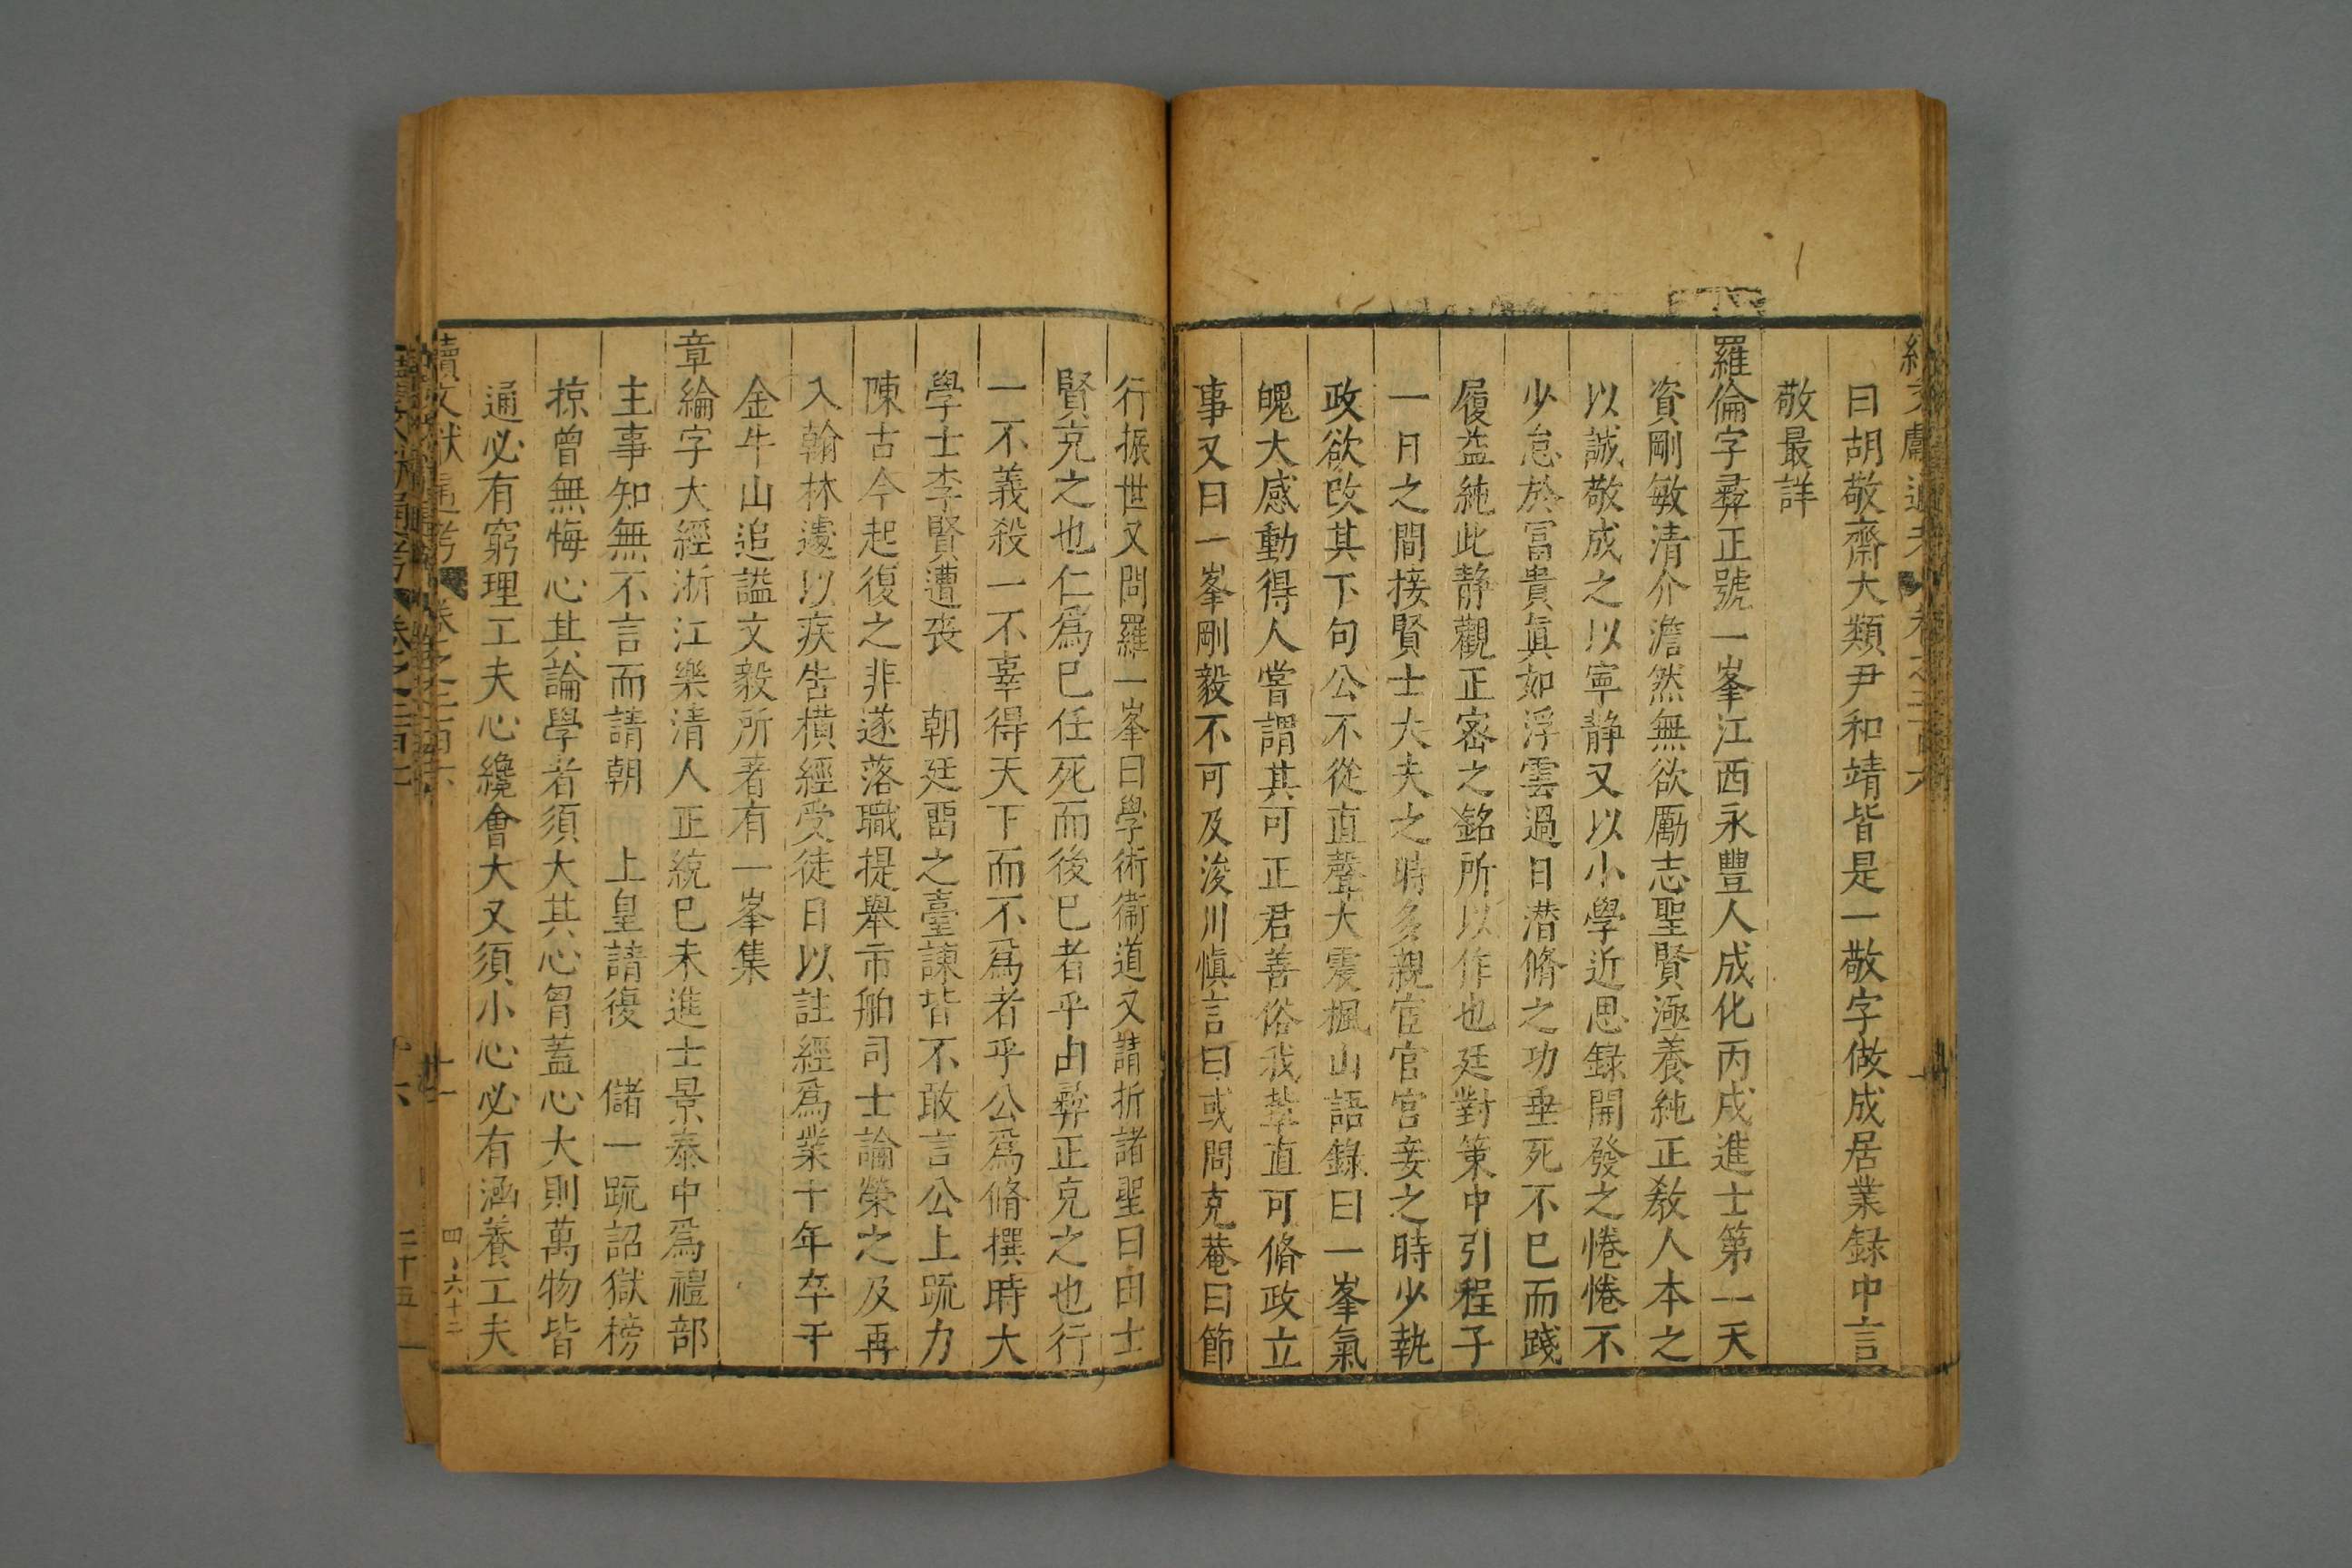 曰胡敬齋大類尹和靖皆是一敬字做成居業録中言
敬最詳
羅倫字彞正號一峯江西永豐人成化丙戌進士第一天
資剛敏清介澹然無欲勵志聖賢極養純正教人本之
以誠敬成之以寧静又以小學近思録開發之惓惓不
少怠於冨貴眞如浮雲過日潜脩之功垂死不已而踐
履益純此静觀正宻之銘所以作也廷對策中引程子
一日之間接賢士大夫之時多親宦官宫妾之時少執
政欲改其下句公不從直聲大震楓山語録曰一峯氣
魄大感動得人嘗謂其可正君善俗我輩直可脩政立
事又曰一峯剛毅不可及浚川慎言曰或問克菴曰節
行振世又問羅一峯曰學術衛道又請折諸聖曰由士
賢克之也仁爲已任死而後已者乎由彞正克之也行
一不義殺一不辜得天下而不爲者乎公爲脩撰時大
學士李賢遭丧 朝廷畱之臺諫皆不敢言公上疏力
陳古今起復之非遂落職提舉市舶司士論榮之及再
入翰林遽以疾告横經受徒日以註經爲業十年卒于
金牛山追謚文毅所著有一峯集
章綸字大經浙江樂清人正統已未進士景泰中爲禮部
主事知無不言而請朝 上皇請復 儲一疏詔獄榜
掠曾無悔心其論學者須大其心胷蓋心大則萬物皆
通必有窮理工夫心纔會大又須小心必有涵養工夫